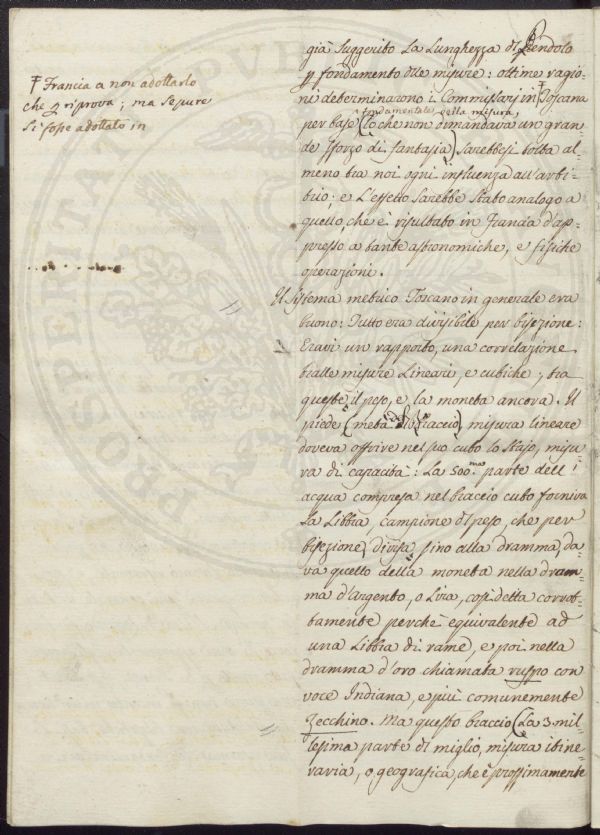 già suggerito la lunghezza del Pendolo
p fondamento delle misure: ottime ragio=
ni determinarono i Commissarj in Ŧ Toscana
fondamentale della misura,
per base (lo che non dimandava un gran
de sforzo di fantasia) sarebbesi tolta al=
meno tra noi ogni influenza all'arbi=
trio; e l'effetto sarebbe stato analogo a
quello, che è risultato in Francia d'ap=
presso a tante astronomiche, e fisiche
operazioni.
Il sistema metrico Toscano in generale era
buono: Tutto era divisibile per bisezione:
Eravi un rapporto, una correlazione
tralle misure lineari, e cubiche; tra
queste il peso, e la moneta ancora. Il
piede (metà del braccio) misura lineare
doveva offrire nel suo cubo lo stajo, misu=
ra di capacità: La 500.ma parte dell'
acqua compresa nel braccio cubo forniva
la Libbra, campione di peso, che per
bisezione divisa fino alla dramma, da=
va quello della moneta nella dram=
ma d'argento, o Lira, così detta corrot=
tamente perchè equivalente ad
una Libbra di rame, e poi nella
dramma d'oro chiamata ruspo con
voce Indiana, e più comunemente
Zecchino. Ma questo braccio (la 3.mil=
lesima parte di miglio, misura itine=
raria, o geografica, che è prossimamente
Ŧ Francia a non adottarlo
che p riprova; ma seppure
si fosse adottato in
PROSPERITAT PUB